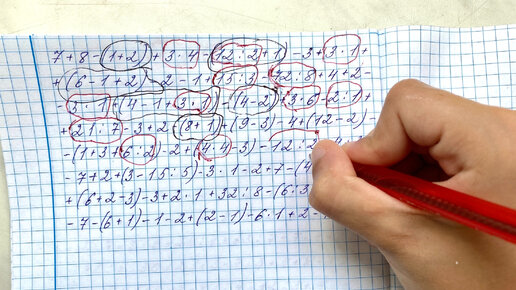 7+8-(1+2)+3·4-(12:2+1)-3+3·1+
+(6-1+2)-2-1+15·3-72:8+4+2-
-2·1+(4-1+3·1)-(4-2)+3·6-2·1+
+21:7-3+2(8+1)+(9-3)-4+(12-2)-
-(1+3+6:2)-2+(4·4-3)-12:2-4+
-7+2+(3-15:5)-3·1-2+1-(4
+(6+2-3)-3+2·1+32:8-(6:3
-7-(6+1)-1-2+(2-1)-6·1+2-